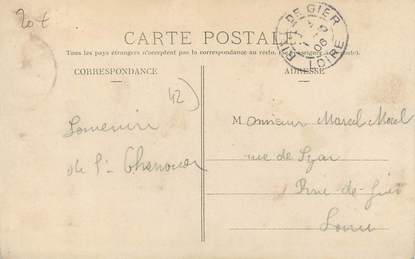 20 €
CARTE POSTALE
Tous les pays étrangers n'acceptent pas la correspondance au recto.
CORRESPONDANCE
ADRESSE
DE GIER
06
LOIRE
42
Souvenir
de St Chamond
M. onsieur Marcel Morel
rue de Lyon
Rive-de-Gier
Loire